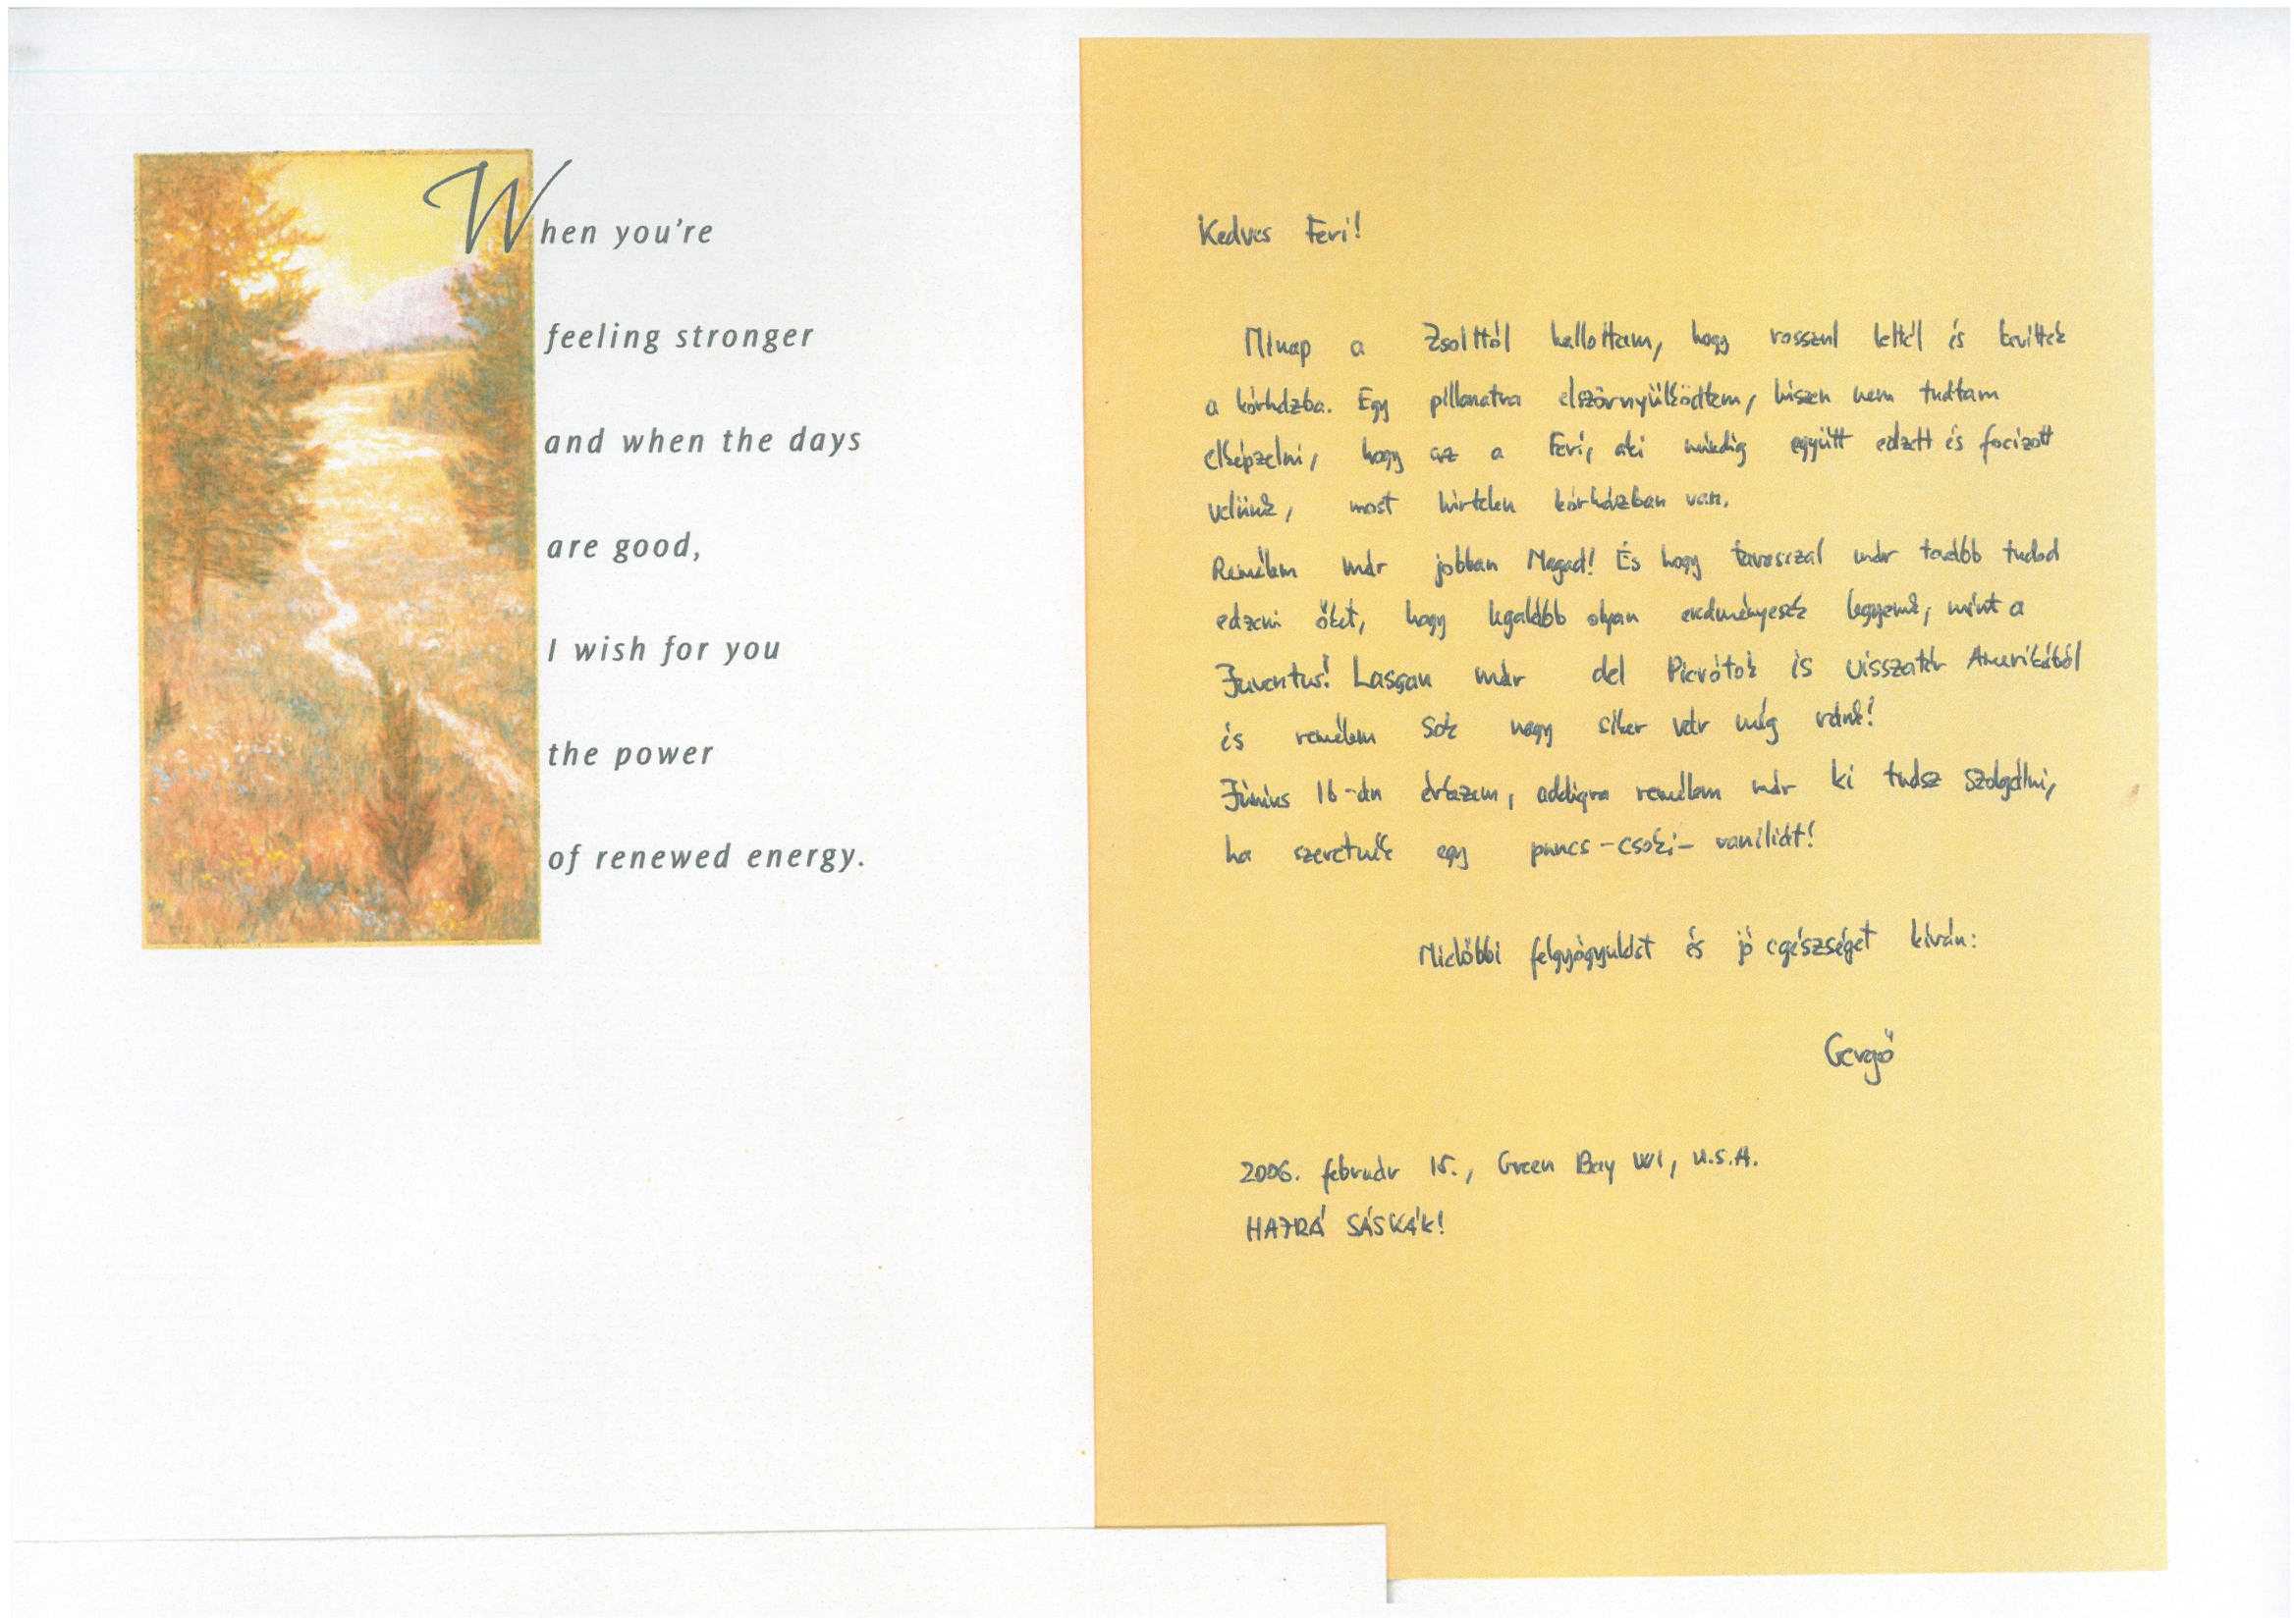 When you're
feeling stronger
and when the days
are good,
I wish for you
the power
of renewed energy.
Kedves Feri!
Minap a Zsolttól hallottam, hogy rosszul lettél és bevittek
a kórházba. Egy pillanatra elszörnyülködtem, hiszen nem tudtam
elképzelni, hogy az a Feri, aki mindig együtt edzett és focizott
velünk, most hirtelen kórházban van.
Remélem már jobban Magad! És hogy tavasszal már tovább tudod
edzeni őket, hogy legalább olyan eredményesek legyenek, mint a
Juventus! Lassan már del Pierótok is visszatér Amerikából
és remélem sok nagy siker vár még ránk!
Június 16-án érkezem, addigra remélem már ki tudsz szolgálni,
ha szeretnék egy puncs-csoki-vaniliát!
Mielőbbi felgyógyulást és jó egészséget kíván:
Gergő
2006. február 15., Green Bay WI, U.S.A.
HAJRÁ SÁSKÁK!